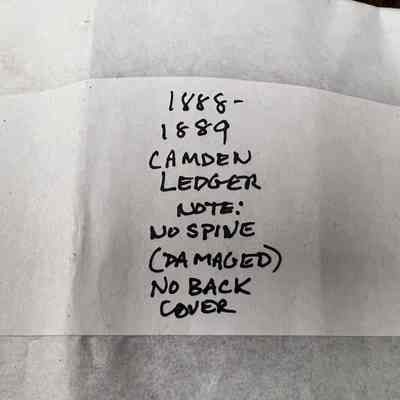 1888-
1889
CAMDEN
LEDGER
NOTE:
NO SPINE
(DAMAGED)
NO BACK
COVER